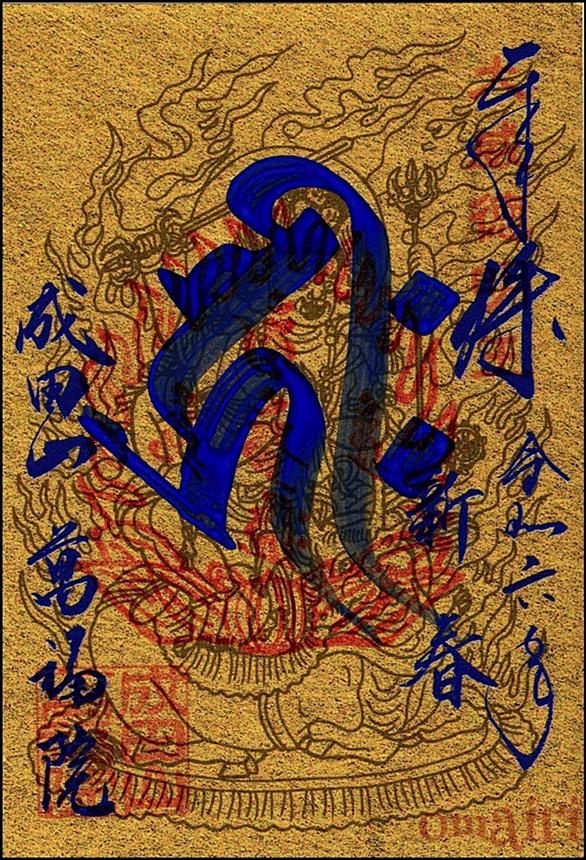 奉拝 令和六年
新春
成田山 萬福院
omairi